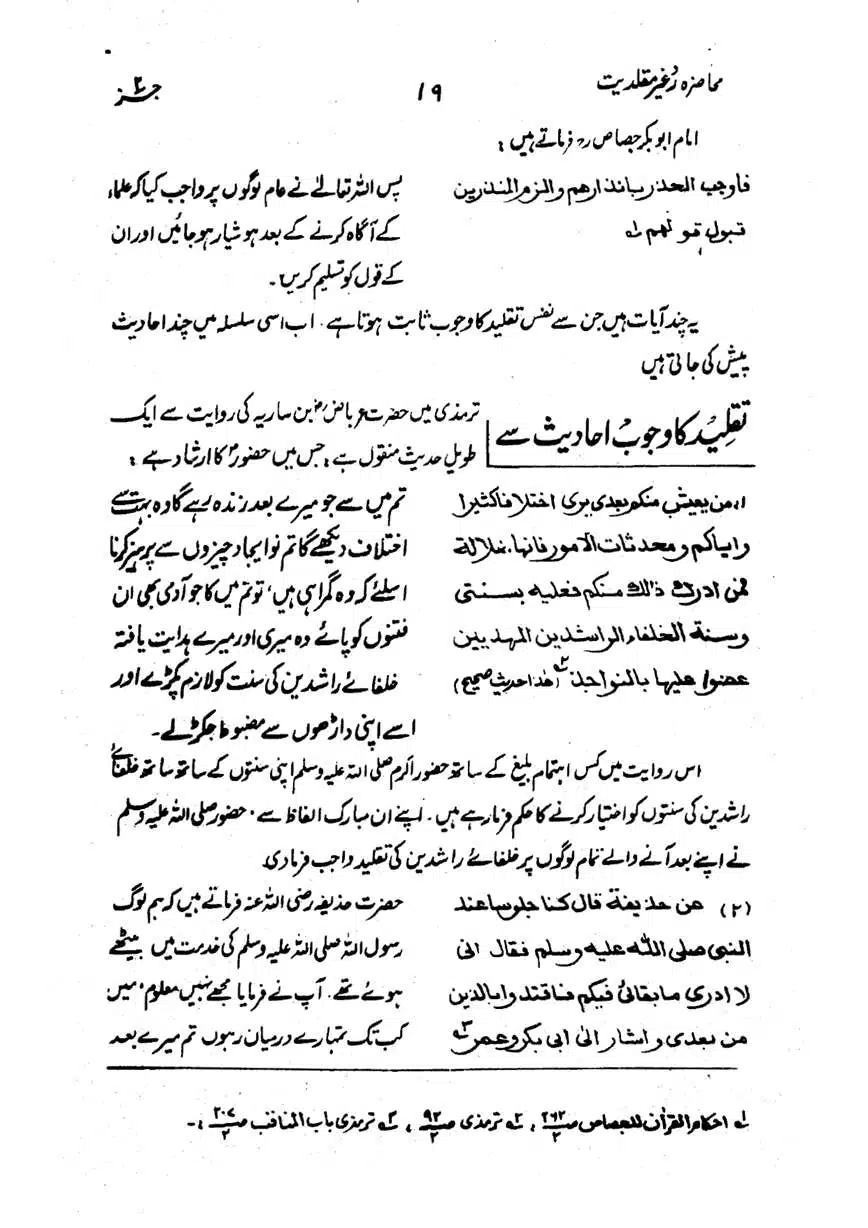 محاضرہ ردّ غیر مقلدیت ۱۹ جز ۲
امام ابوبکر جصاص رح فرماتے ہیں :
فاوجب الحذر بانذارهم والزم المنذرین پس اللہ تعالےٰ نے عام لوگوں پر واجب کیا کہ علماء
قبول قولهم لہ کے آگاہ کرنے کے بعد ہوشیار ہو جائیں اور ان
کے قول کو تسلیم کریں۔
یہ چند آیات ہیں جن سے نفس تقلید کا وجوب ثابت ہوتا ہے۔ اب اسی سلسلہ میں چند احادیث
پیش کی جاتی ہیں
تقلید کا وجوب احادیث سے ترمذی میں حضرت عرباض رض بن ساریہ کی روایت سے ایک
طویل حدیث منقول ہے، جس میں حضورؐ کا ارشاد ہے :
۱، من یعیش منکم بعدی یری اختلافا کثیرا تم میں سے جو میرے بعد زندہ رہے گا وہ بہت سے
وایاکم ومحدثات الامور فانها ضلالة اختلاف دیکھے گا تم نو ایجاد چیزوں سے پرہیز کرنا
فمن ادرک ذالک منکم فعلیه بسنتی اسلئے کہ وہ گمراہی ہیں، تو تم میں کا جو آدمی بھی ان
وسنة الخلفاء الراشدین المهدیین فتنوں کو پائے وہ میری اور میرے ہدایت یافتہ
عضوا علیها بالنواجذ ۲ (هذا حدیث صحیح) خلفائے راشدین کی سنت کو لازم پکڑے اور
اسے اپنی داڑھوں سے مضبوط جکڑ لے۔
اس روایت میں کس اہتمام بلیغ کے ساتھ حضور اکرم صلی اللہ علیہ وسلم اپنی سنتوں کے ساتھ ساتھ خلفائے
راشدین کی سنتوں کو اختیار کرنے کا حکم فرما رہے ہیں۔ اپنے ان مبارک الفاظ سے، حضور صلی اللہ علیہ وسلم
نے اپنے بعد آنے والے تمام لوگوں پر خلفائے راشدین کی تقلید واجب فرما دی
(۲) عن حذیفة قال کنا جلوسا عند حضرت حذیفہ رضی اللہ عنہ فرماتے ہیں کہ ہم لوگ
النبی صلی اللہ علیه وسلم فقال انی رسول اللہ صلی اللہ علیہ وسلم کی خدمت میں بیٹھے
لا ادری ما بقائی فیکم فاقتدوا بالذین ہوئے تھے۔ آپ نے فرمایا مجھے نہیں معلوم، میں
من بعدی واشار الی ابی بکر وعمر ۳ کب تک تمہارے درمیان رہوں تم میرے بعد
لہ احکام القرآن للجصاص ص ۲۶۲/۲، ۲ ترمذی ص ۹۲/۲، ۳ ترمذی باب المناقب ص ۲۰۷/۲،۔